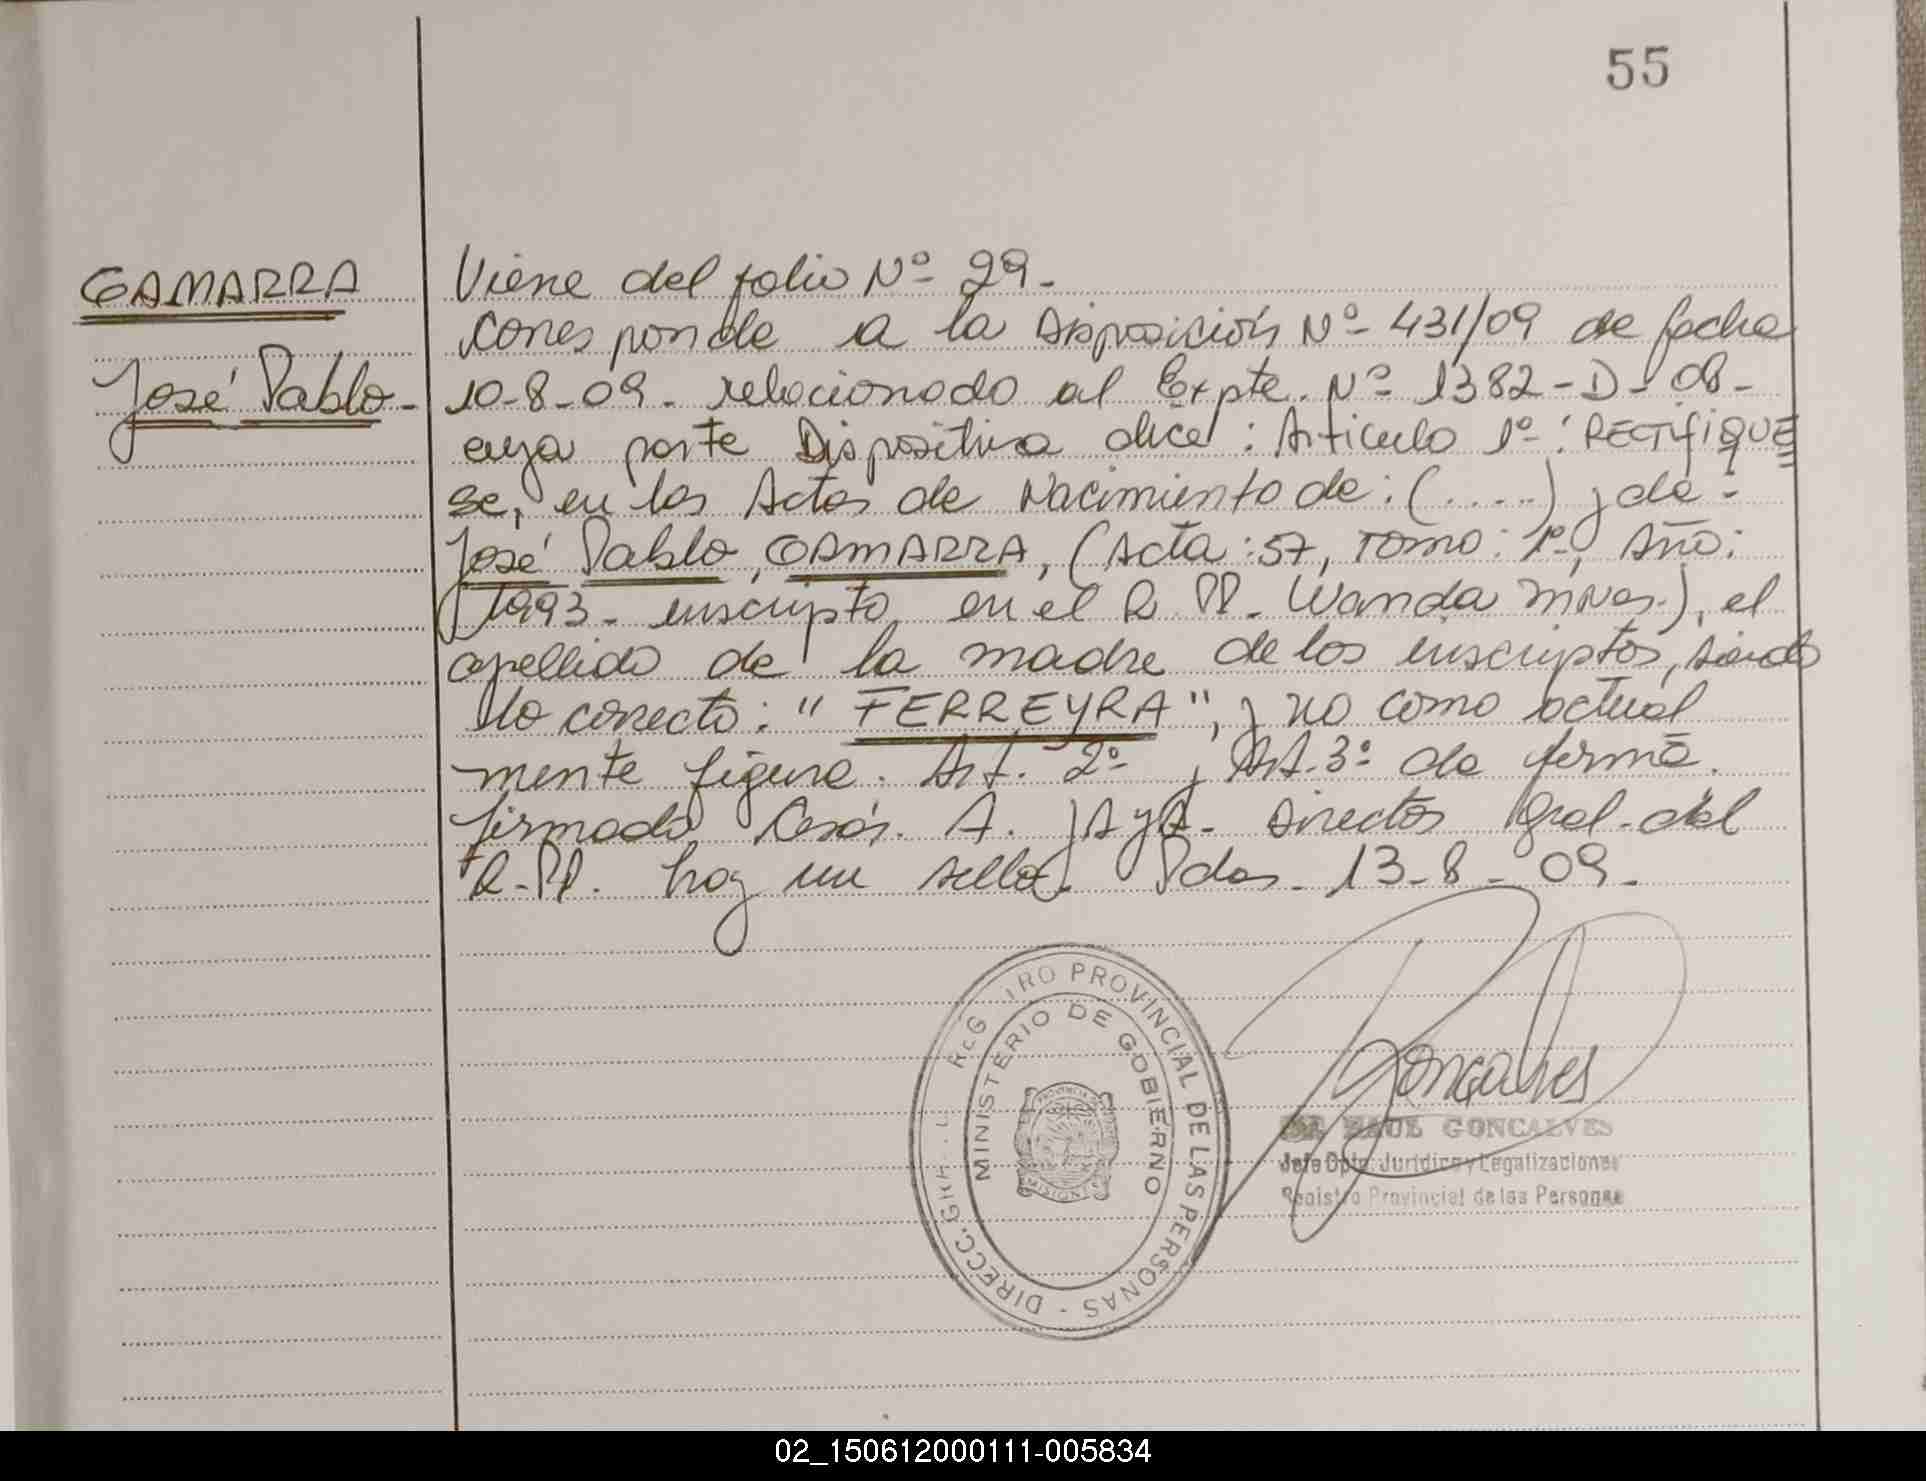 55
GAMARRA
José Pablo-
Viene del folio Nº 29.
Corresponde a la Disposición Nº 431/09 de fecha
10-8-09. relacionado al Expte. Nº 1382-D-08-
cuya parte Dispositiva dice: Articulo 1º: RECTIFIQUE
se, en las Actas de Nacimiento de: (.....) y de:
José Pablo, GAMARRA, (Acta: 57, Tomo: 1º, Año:
1993- inscripto en el R.PP. Wanda Mnes.), el
apellido de la madre de los inscriptos, siendo
lo correcto: "FERREYRA", y no como actual
mente figura. Art. 2º y Art. 3º de forma.
firmado César. A. JAyA- Director Gral. del
R.PP. hay un sello. Pdas- 13-8-09.
DIRECC. GRAL. REG TRO PROVINCIAL DE LAS PERSONAS -
MINISTERIO DE GOBIERNO
PROVINCIA
MISIONES
Goncalves
RAUL GONCALVES
Jefe Dpto. Jurídico y Legalizaciones
Registro Provincial de las Personas
02_150612000111-005834